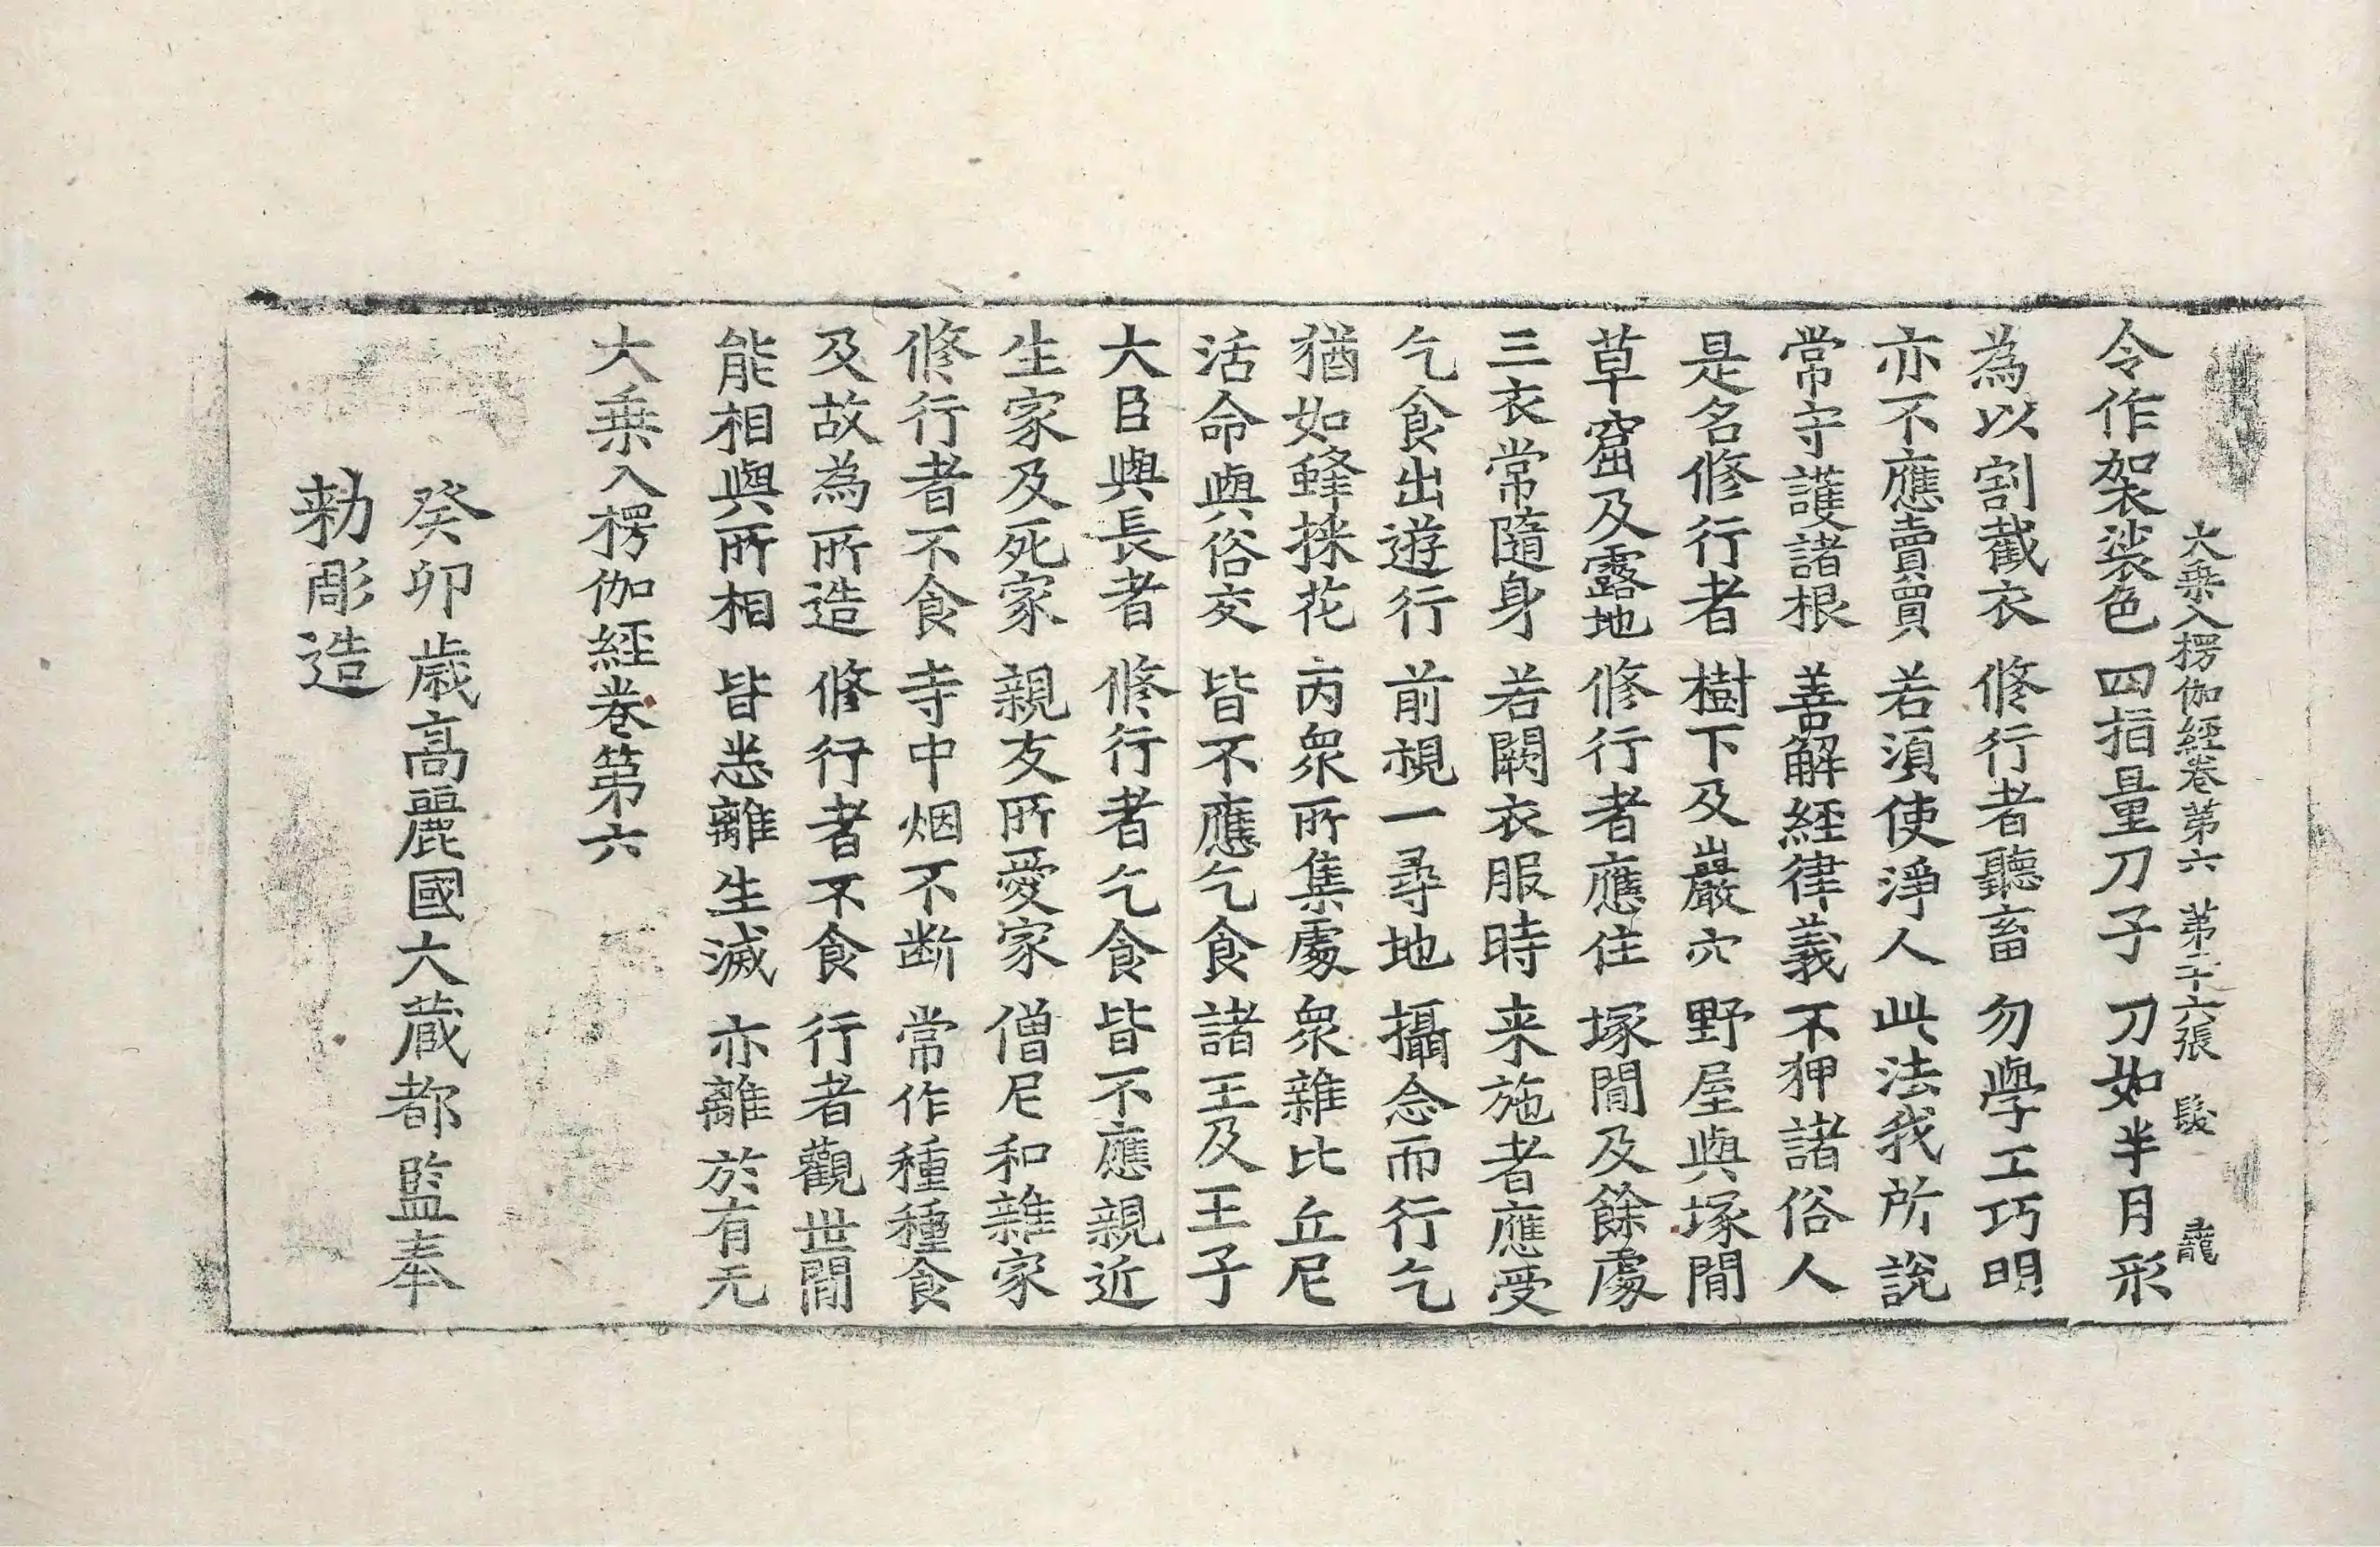 大乗入楞伽經卷第六 第二十六張 髮 𪚥
令作袈裟色 四指量刀子 刀如半月形
為以割截衣 修行者聽畜 勿學工巧明
亦不應賣買 若湏使淨人 此法我所說
常守護諸根 善解經律義 不狎諸俗人
是名修行者 樹下及巖穴 野屋與塚閒
草窟及露地 修行者應住 塚閒及餘處
三衣常隨身 若闕衣服時 来施者應受
乞食出遊行 前視一尋地 攝念而行乞
猶如蜂採花 丙衆所集處 衆雜比丘尼
活命與俗交 皆不應乞食 諸王及王子
大臣與長者 修行者乞食 皆不應親近
生家及死家 親友所愛家 僧尼和雜家
修行者不食 寺中烟不断 常作種種食
及故為所造 修行者不食 行者觀世閒
能相與所相 皆悉離生滅 亦離於有无
大乗入楞伽經卷第六
癸卯歳高麗國大蔵都監奉
勅彫造